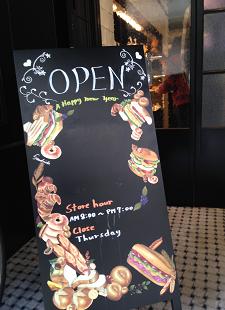 OPEN
A Happy New Year
Store hour
AM 8:00 ~ PM 7:00
Close
Thursday